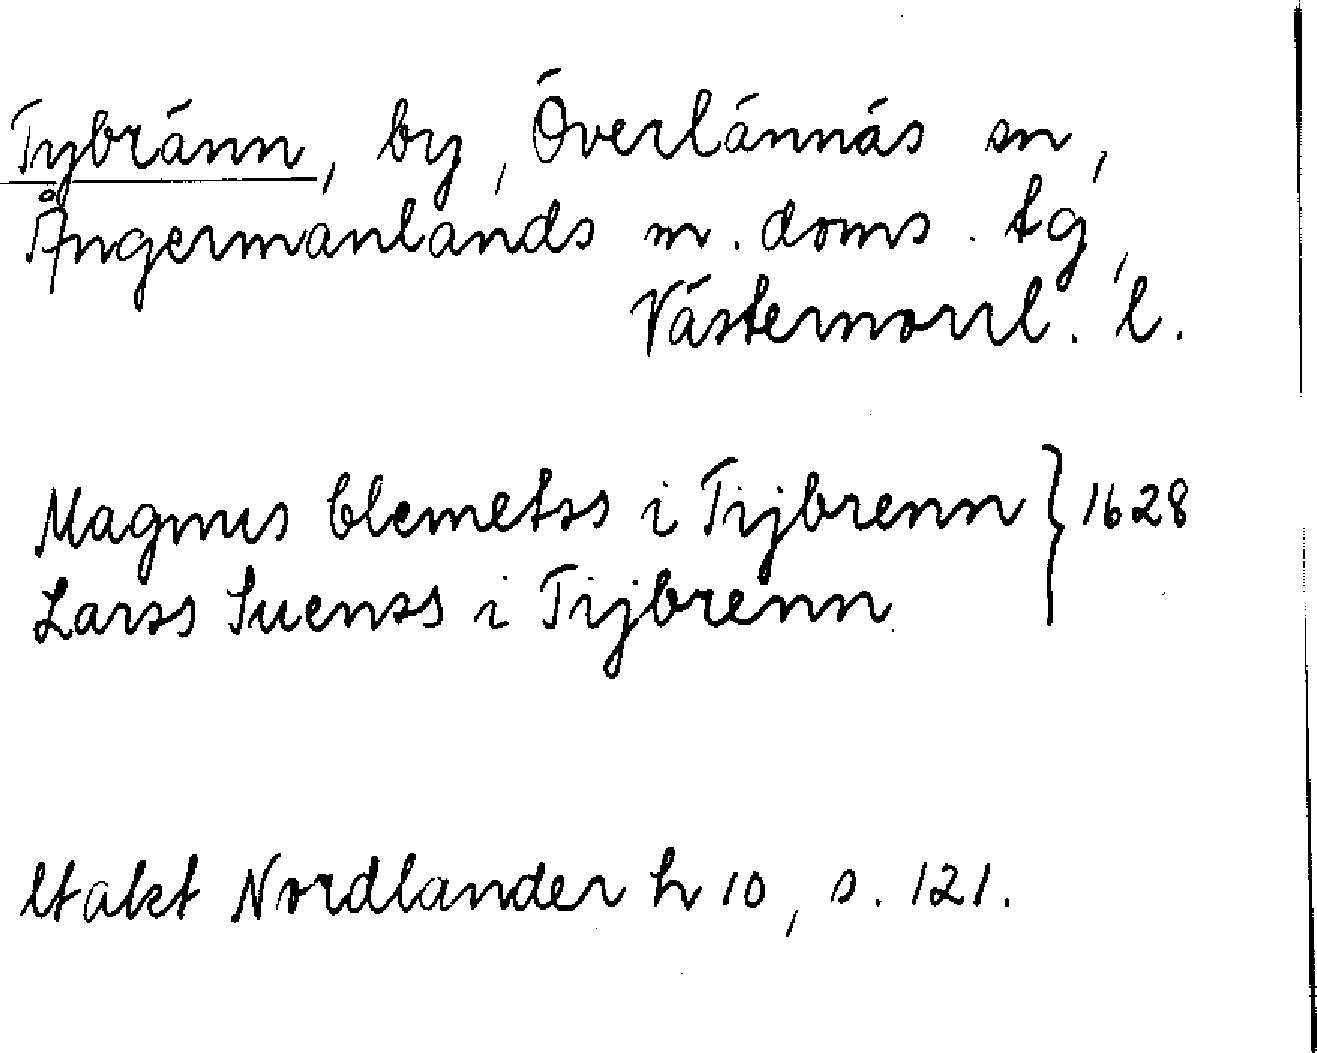 Tybränn, by, Överlännäs sn,
Ångermanlands m. doms. tg,
Västernorrl. l.
Magnus Clemetss i Tijbrenn } 1628
Larss Suenss i Tijbrenn
Utakt Nordlander h 10, s. 121.